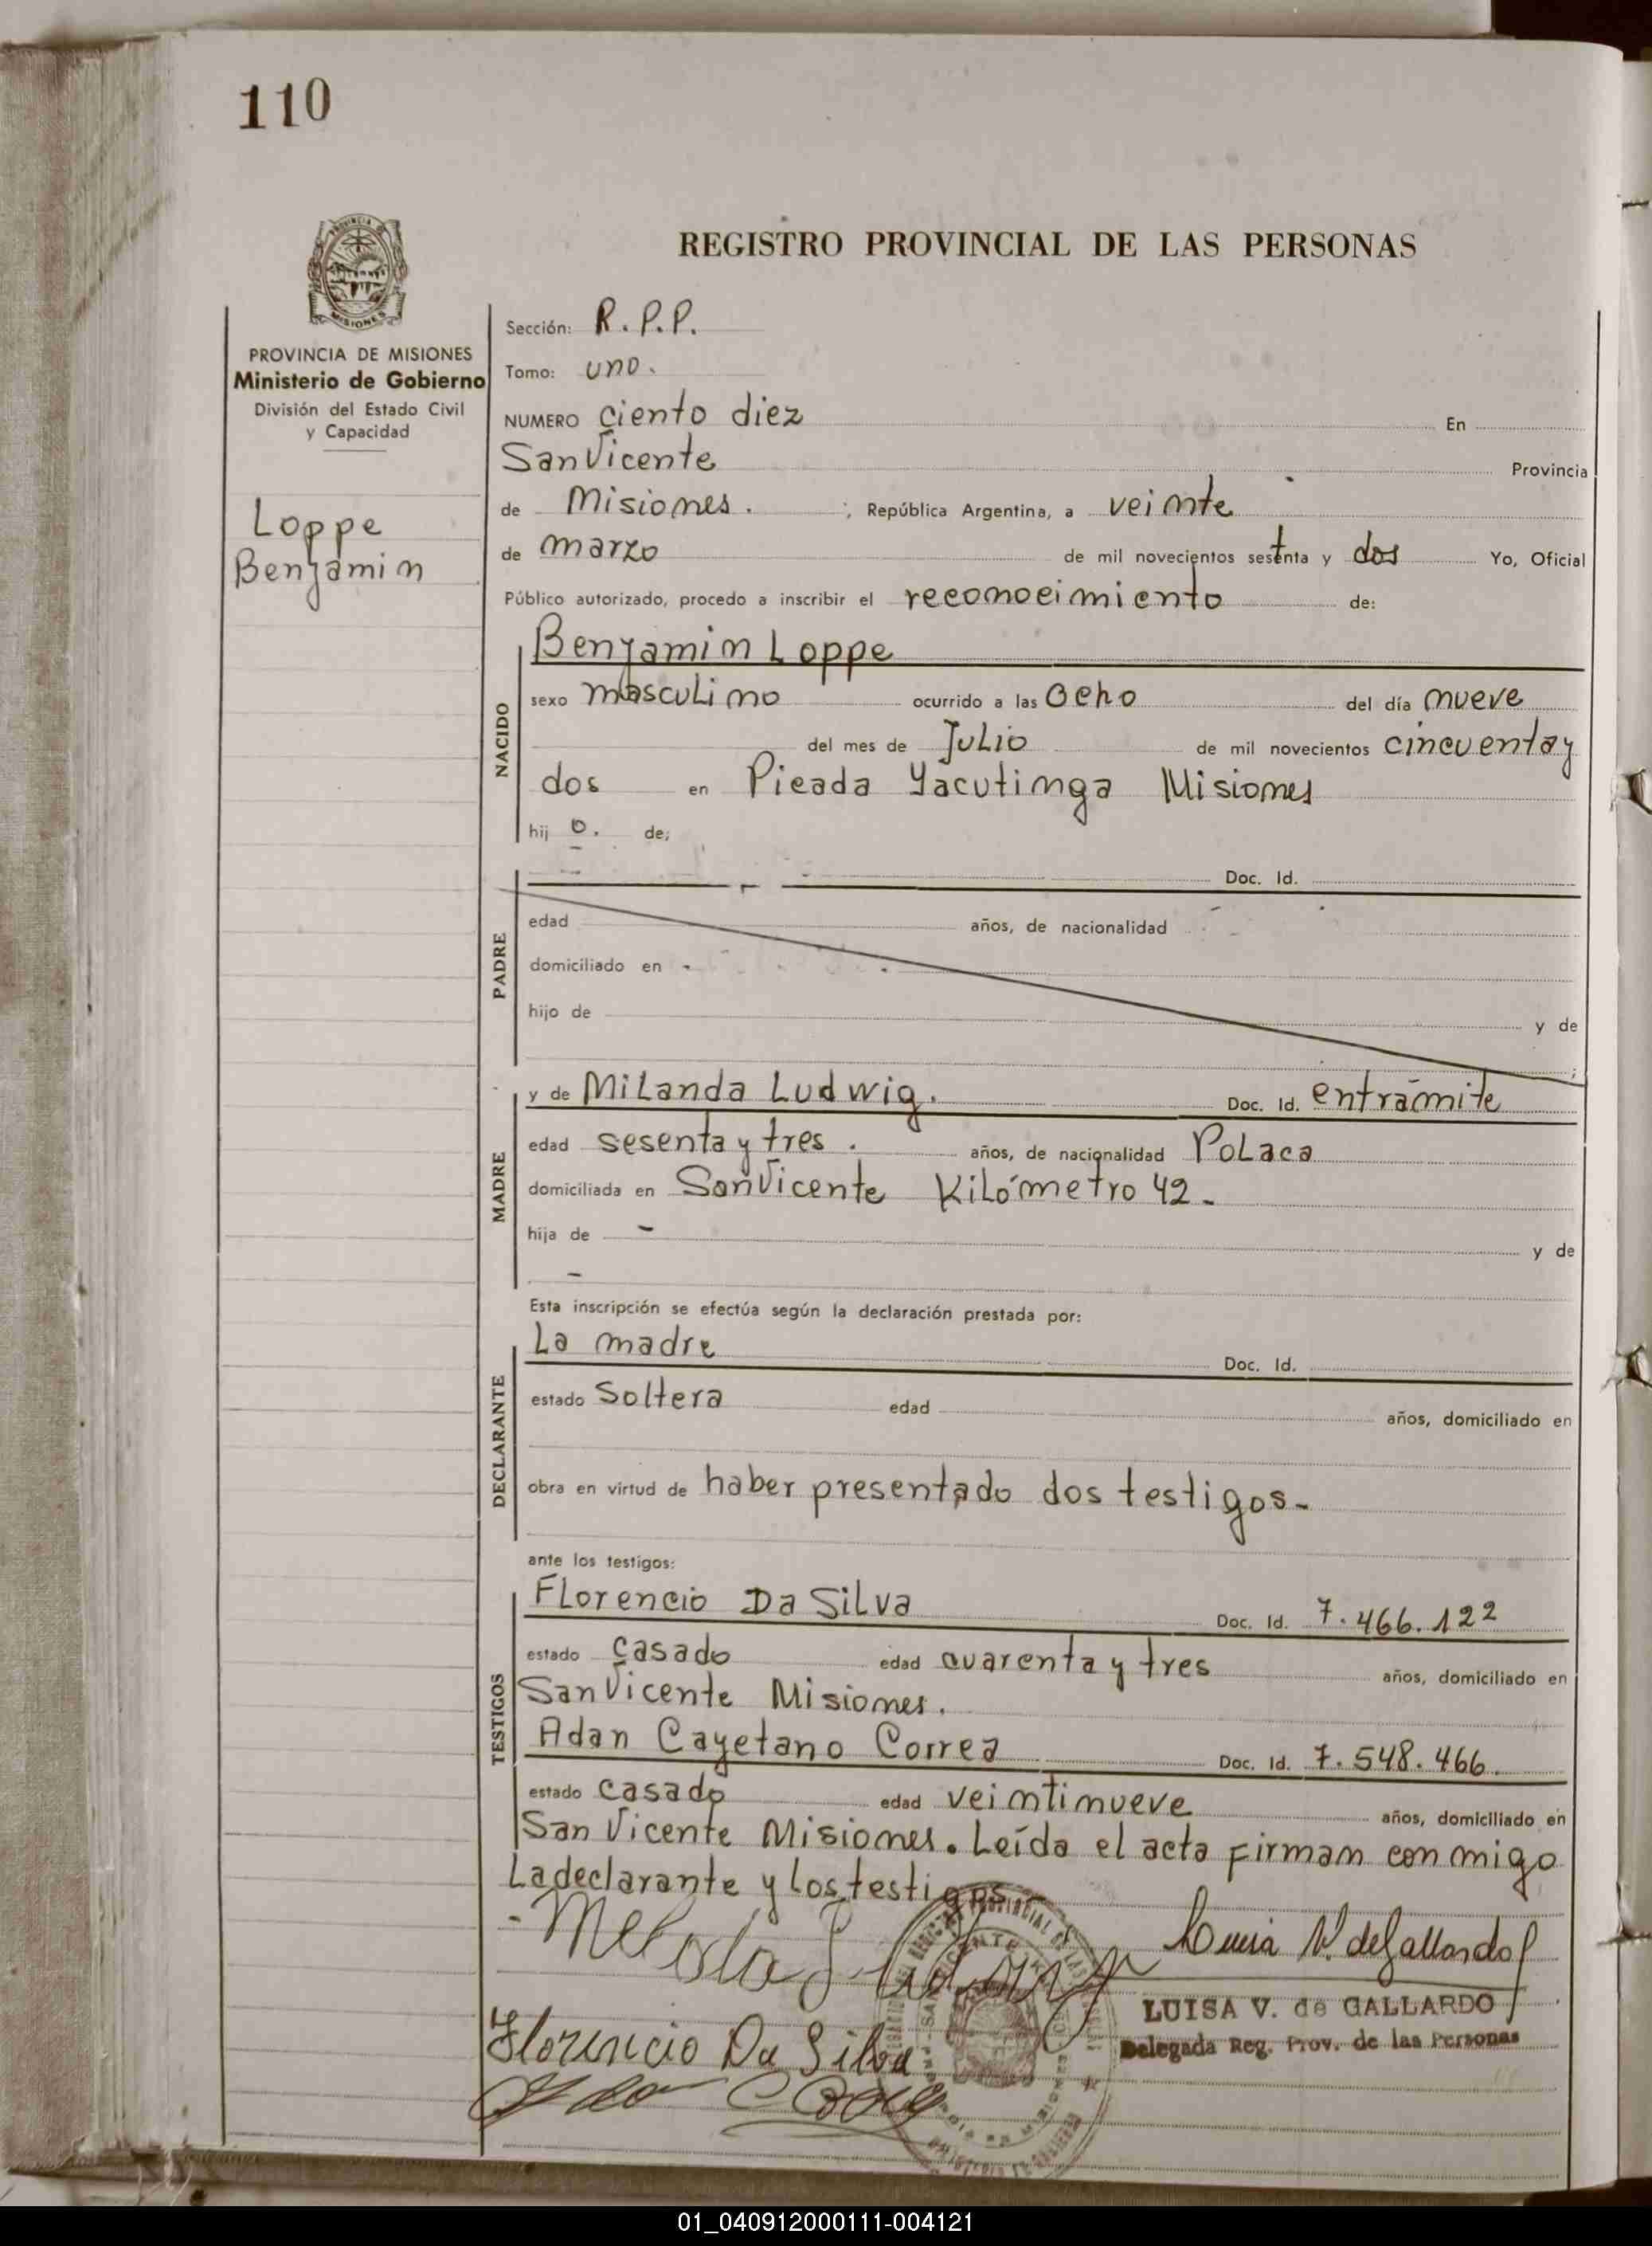 110
REGISTRO PROVINCIAL DE LAS PERSONAS
MISIONES
PROVINCIA DE MISIONES
Ministerio de Gobierno
División del Estado Civil
y Capacidad
Loppe
Benjamin
Sección: R.P.P.
Tomo: uno.
NUMERO ciento diez En
San Vicente Provincia
de Misiones. ; República Argentina, a veinte
de marzo de mil novecientos setenta y dos Yo, Oficial
Público autorizado, procedo a inscribir el reconocimiento de:
NACIDO
Benjamin Loppe
sexo masculino ocurrido a las ocho del día nueve
del mes de Julio de mil novecientos cincuenta y
dos en Picada Yacutinga Misiones
hij o. de;
PADRE
Doc. Id.
edad años, de nacionalidad
domiciliado en
hijo de y de
;
MADRE
y de Milanda Ludwig. Doc. Id. entrámite
edad sesenta y tres. años, de nacionalidad Polaca
domiciliada en San Vicente Kilómetro 42.-
hija de - y de
-
Esta inscripción se efectúa según la declaración prestada por:
DECLARANTE
La madre Doc. Id.
estado Soltera edad años, domiciliado en
obra en virtud de haber presentado dos testigos.-
ante los testigos:
TESTIGOS
Florencio Da Silva Doc. Id. 7.466.122
estado casado edad cuarenta y tres años, domiciliado en
San Vicente Misiones.
Adan Cayetano Correa Doc. Id. 7.548.466.
estado casado edad veintinueve años, domiciliado en
San Vicente Misiones. Leída el acta firman conmigo
La declarante y los testigos.-
V. de Gallardo
LUISA V. de GALLARDO
Delegada Reg. Prov. de las Personas
Florencio Da Silva
01_040912000111-004121